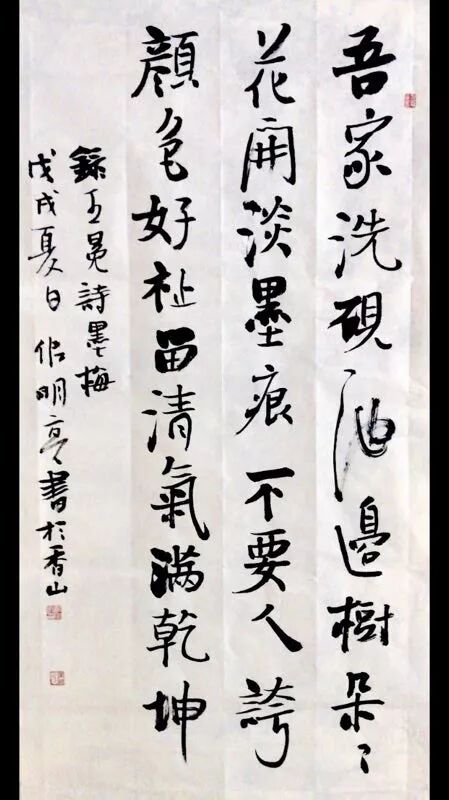 吾家洗硯池邊樹朵〻
花開淡墨痕不要人誇
顔色好祉留清氣滿乾坤
錄王冕詩墨梅
戊戌夏日佀明亮書於香山